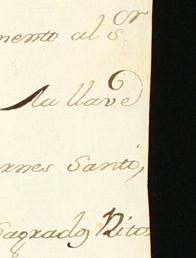 mento al S.or
la llave
ernes Santo,
Sagrados Ritos